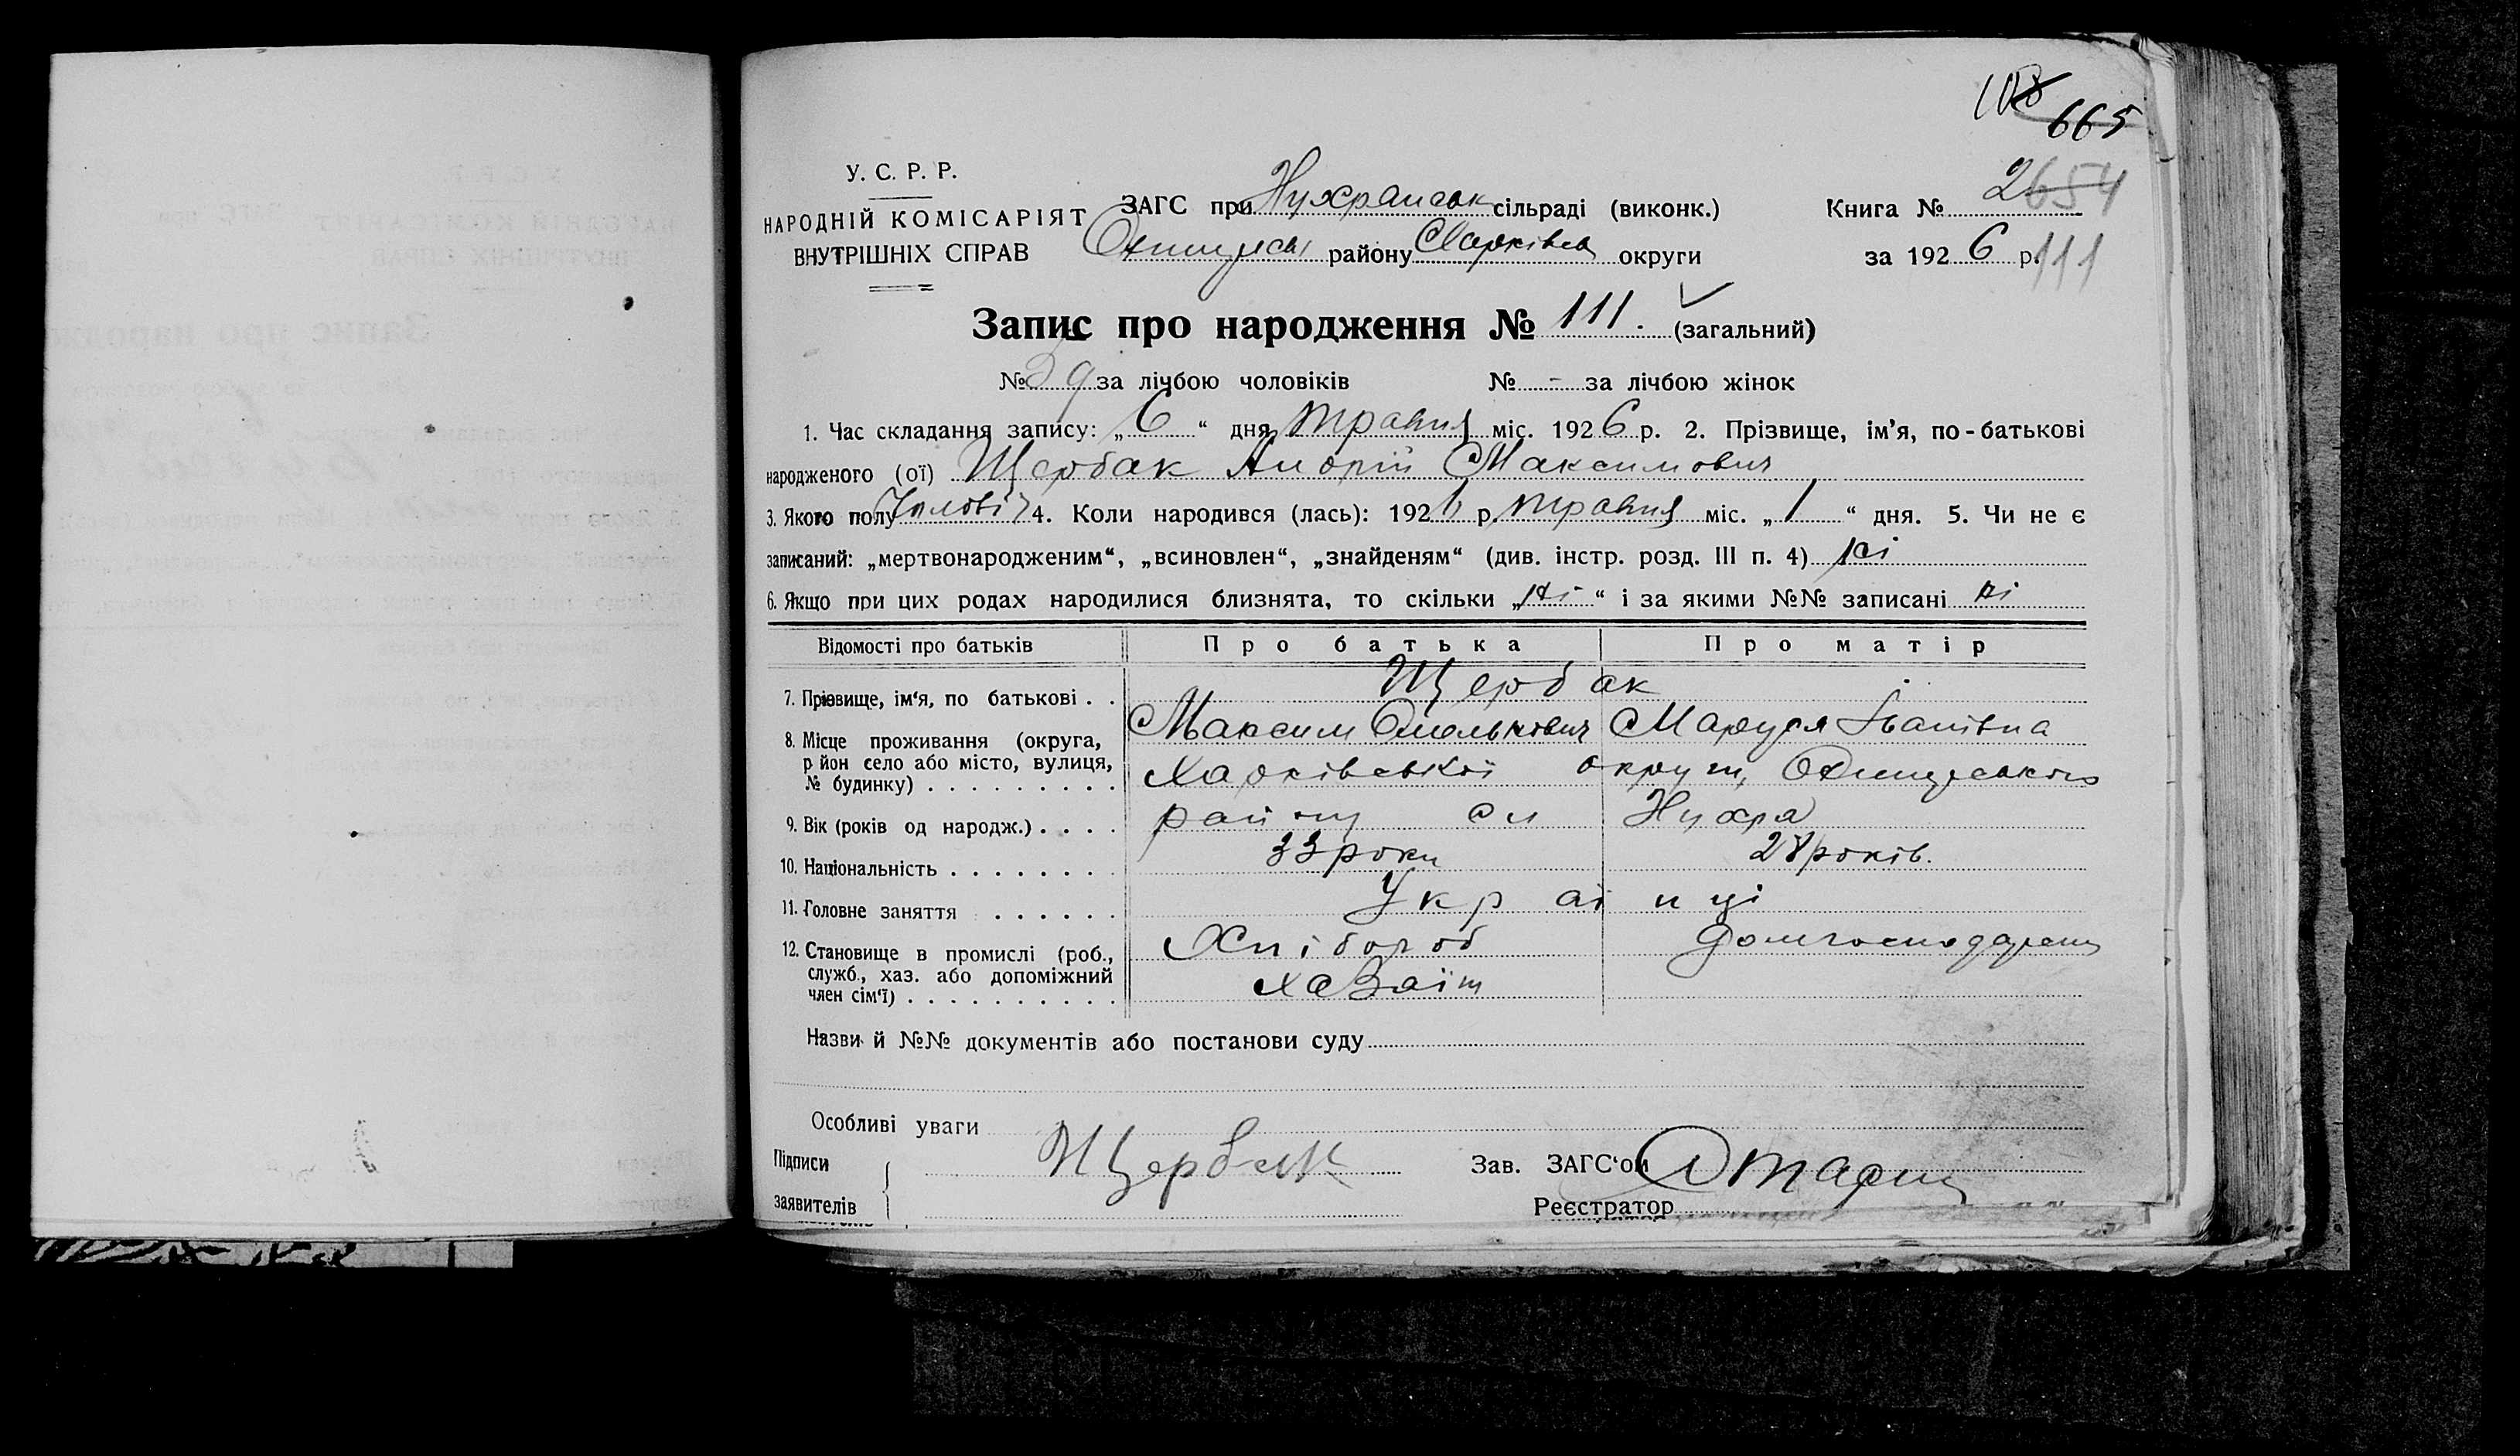 665
У. С. Р. Р.
НАРОДНІЙ КОМІСАРІЯТ
ВНУТРІШНІХ СПРАВ
ЗАГС при сільраді (виконк.)
району округи
Книга № 2654
за 1926 р. 111
Запис про народження № 111. (загальний)
№ 59 за лічбою чоловіків № - за лічбою жінок
1. Час складання запису: „6“ дня травня міс. 1926 р. 2. Прізвище, ім'я, по-батькові
народженого (ої) Щербак Андрій Максимович
3. Якого полу 4. Коли народився (лась): 192 р. травня міс. „1“ дня. 5. Чи не є
записаний: „мертвонародженим“, „всиновлен“, „знайденям“ (див. інстр. розд. III п. 4) ні
6. Якщо при цих родах народилися близнята, то скільки „ні“ і за якими №№ записані ні
Відомості про батьків Про батька Про матір
7. Прізвище, ім'я, по батькові . . Щербак
Максим Маруся Іванівна
8. Місце проживання (округа,
район село або місто, вулиця,
№ будинку) . . . . . . . . . Харківської округи,
району
9. Вік (років од народж.) . . . . 33 роки 28 років.
10. Національність . . . . . . . . Українці
11. Головне заняття . . . . . . Хлібороб
12. Становище в промислі (роб.,
служб., хаз. або допоміжний
член сім'ї) . . . . . . . . . .
Назви й №№ документів або постанови суду
Особливі уваги
Підписи
заявителів
Щербак
Зав. ЗАГС'ом
Реєстратор